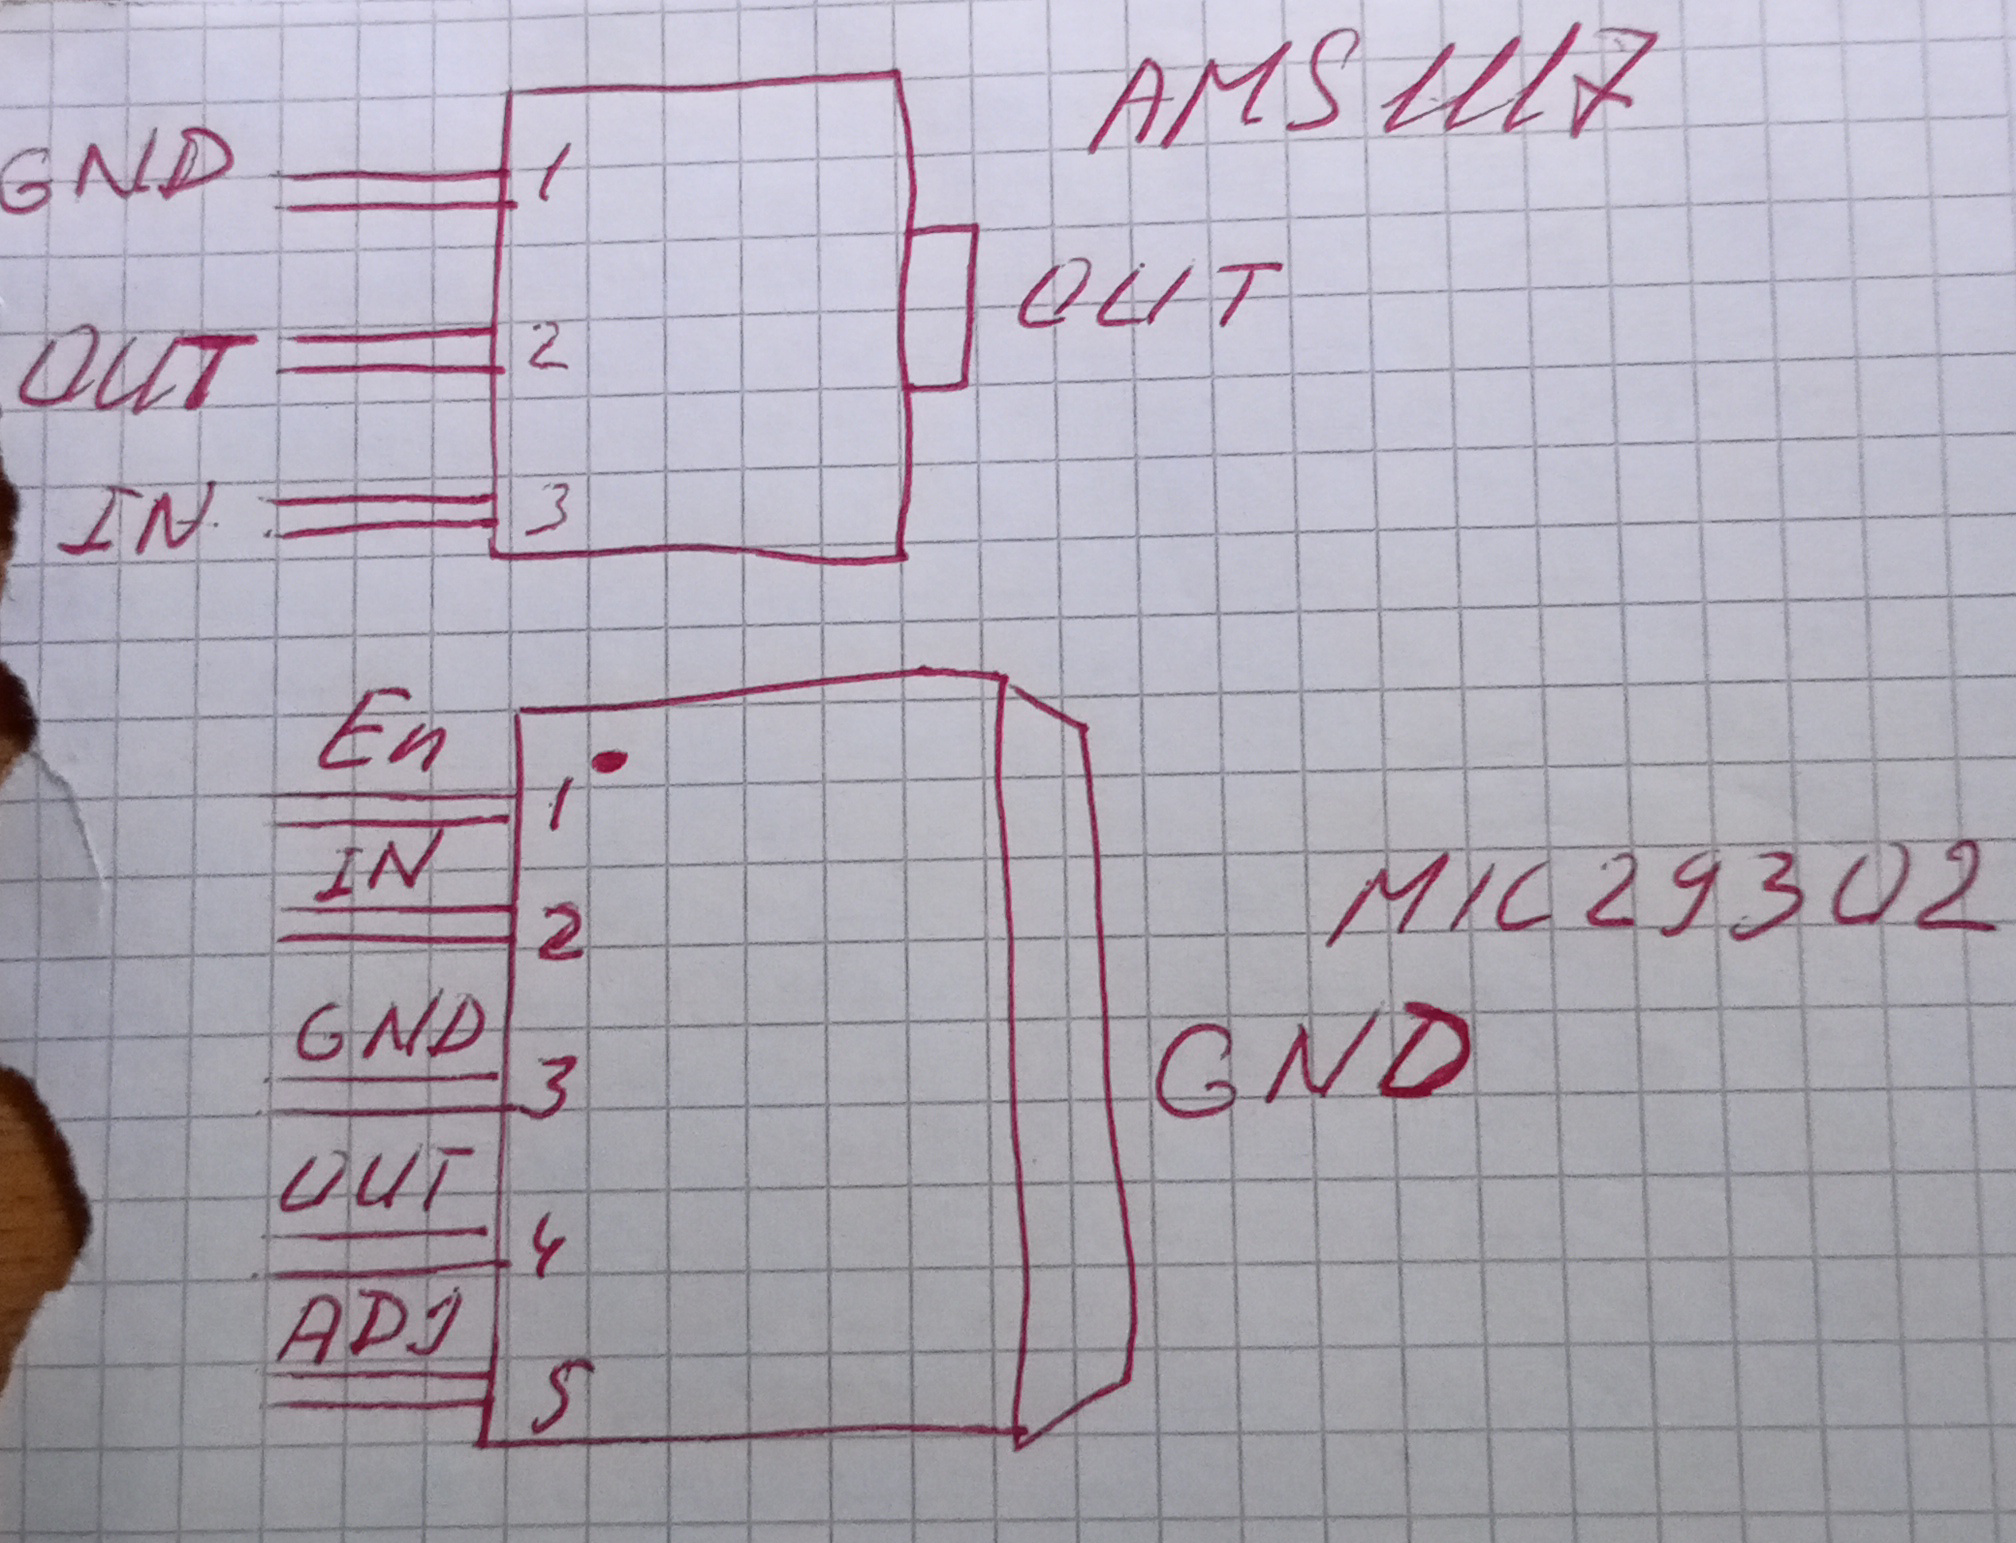 AMS1117
GND 1
OUT 2 OUT
IN 3
En
1
IN
2
MIC29302
GND
3
GND
OUT
4
ADJ
5